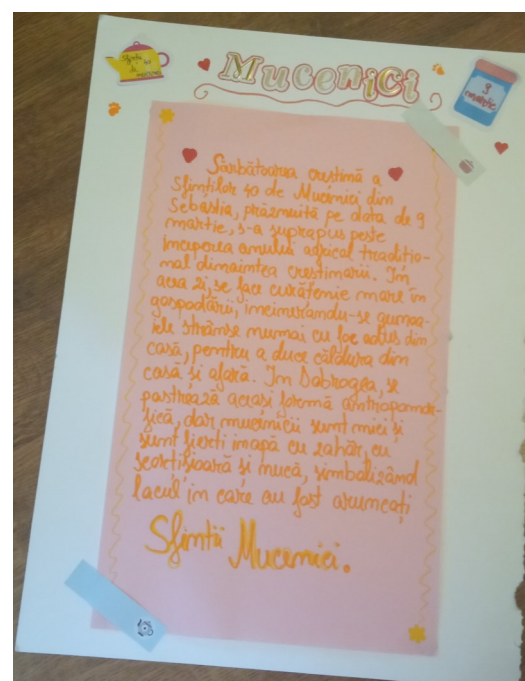 Sfinții
40
de
mucenici
Mucenici
9
martie
Sărbătoarea creștină a
Sfinților 40 de Mucenici din
Sebastia, prăznuită pe data de 9
martie, s-a suprapus peste
începerea anului agricol traditio-
nal dinaintea creștinarii. În
acea zi, se face curățenie mare în
gospodării, incinerându-se gunoa-
iele strânse numai cu foc adus din
casă, pentru a duce căldura din
casă și afară. În Dobrogea, se
pastrează aceași formă antropomor-
fică, dar mucenicii sunt mici și
sunt fierți in apă cu zahăr, cu
scorțișoară și nucă, simbolizând
lacul in care au fost aruncați
Sfintii Mucenici.